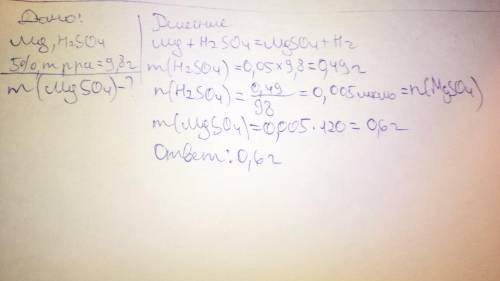 Дано:
Mg, H2SO4
5%, m р-ра = 9,8 г
m(MgSO4) - ?
Решение
Mg + H2SO4 = MgSO4 + H2
m(H2SO4) = 0,05 × 9,8 = 0,49 г
n(H2SO4) = 0,49/98 = 0,005 моль = n(MgSO4)
m(MgSO4) = 0,005 · 120 = 0,6 г
Ответ: 0,6 г